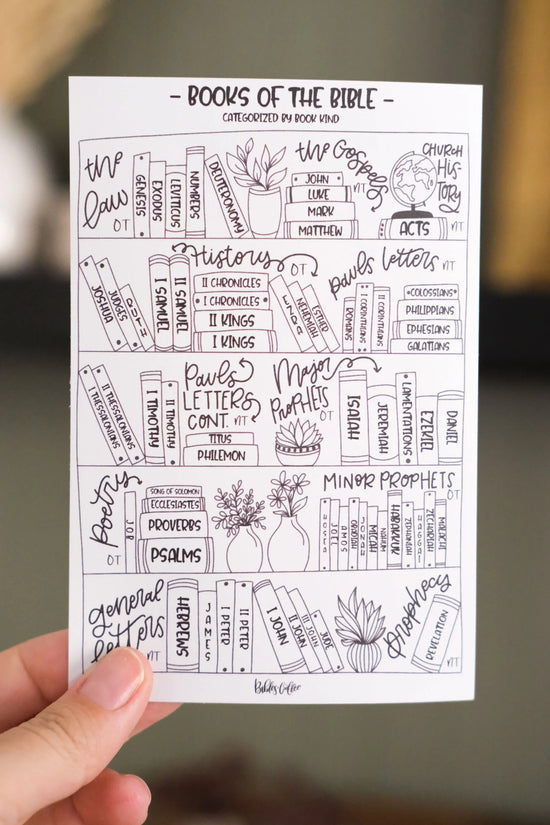 - BOOKS OF THE BIBLE -
CATEGORIZED BY BOOK KIND
the law OT
GENESIS
EXODUS
LEVITICUS
NUMBERS
DEUTERONOMY
the Gospels NT
JOHN
LUKE
MARK
MATTHEW
CHURCH HIS-TORY NT
ACTS
History OT
JOSHUA
JUDGES
RUTH
I SAMUEL
II SAMUEL
II CHRONICLES
I CHRONICLES
II KINGS
I KINGS
EZRA
NEHEMIAH
ESTHER
pauls letters NT
ROMANS
I CORINTHIANS
II CORINTHIANS
COLOSSIANS
PHILIPPIANS
EPHESIANS
GALATIANS
I THESSALONIANS
II THESSALONIANS
I TIMOTHY
II TIMOTHY
Pauls LETTERS CONT. NT
TITUS
PHILEMON
Major Prophets OT
ISAIAH
JEREMIAH
LAMENTATIONS
EZEKIEL
DANIEL
Poetry OT
JOB
SONG OF SOLOMON
ECCLESIASTES
PROVERBS
PSALMS
MINOR PROPHETS OT
HOSEA
JOEL
AMOS
OBADIAH
JONAH
MICAH
NAHUM
HABAKKUK
ZEPHANIAH
HAGGAI
ZECHARIAH
MALACHI
general letters NT
HEBREWS
JAMES
I PETER
II PETER
I JOHN
II JOHN
III JOHN
JUDE
prophecy NT
REVELATION